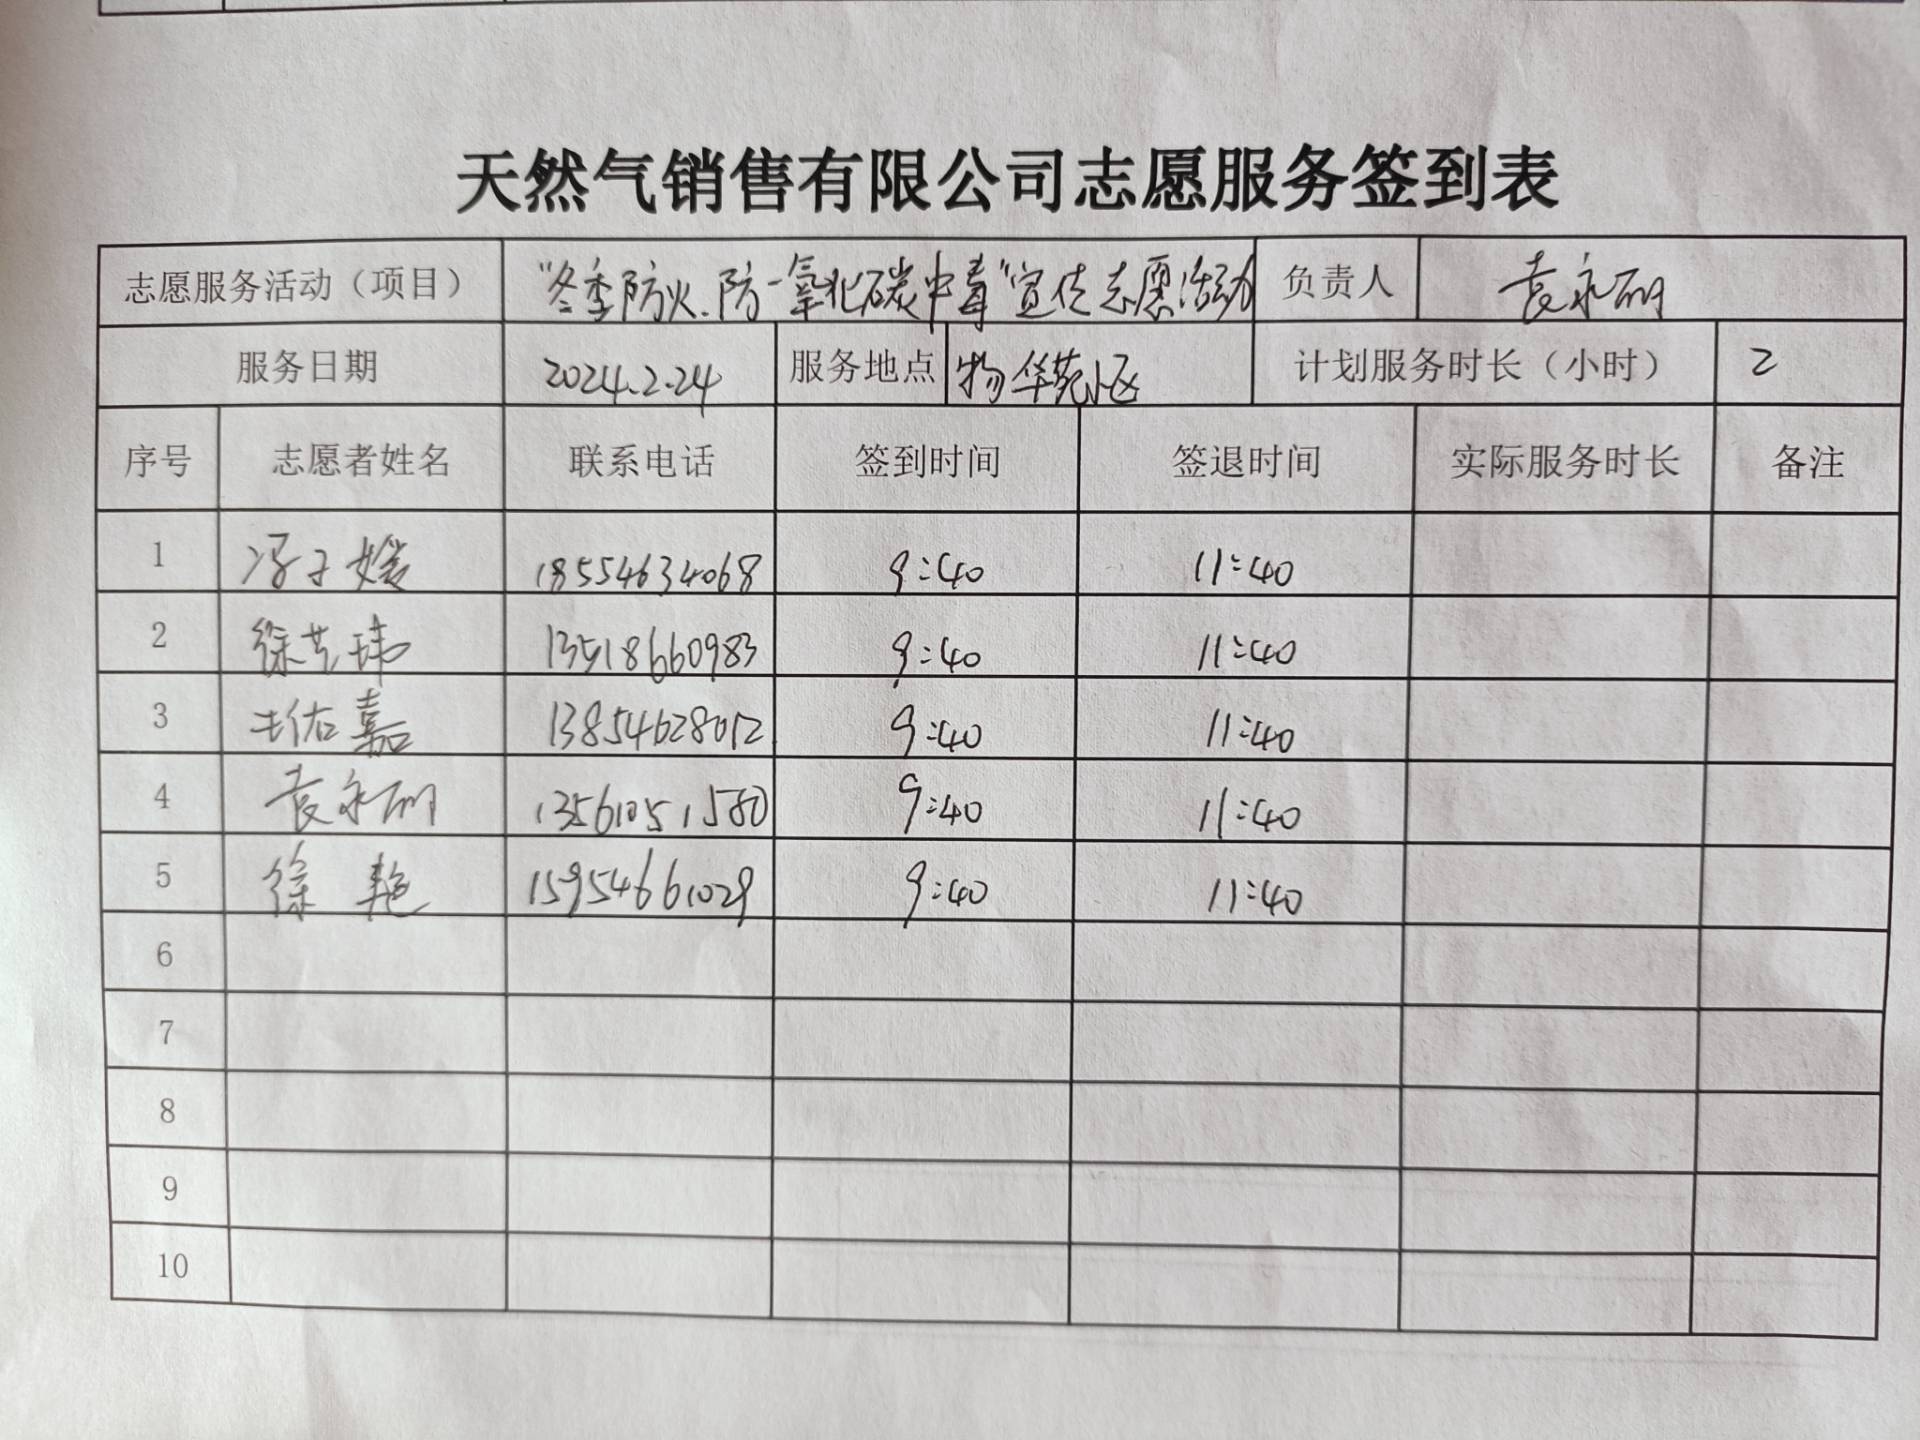 天然气销售有限公司志愿服务签到表
志愿服务活动（项目） “冬季防火.防一氧化碳中毒”宣传志愿活动 负责人 袁永丽
服务日期 2024.2.24 服务地点 物华苑小区 计划服务时长（小时） 2
序号 志愿者姓名 联系电话 签到时间 签退时间 实际服务时长 备注
1 冯子媛 18554634068 9:40 11:40
2 徐艺玮 13518660983 9:40 11:40
3 佑嘉 13854628012 9:40 11:40
4 袁永丽 13561051580 9:40 11:40
5 徐艳 15954661029 9:40 11:40
6
7
8
9
10